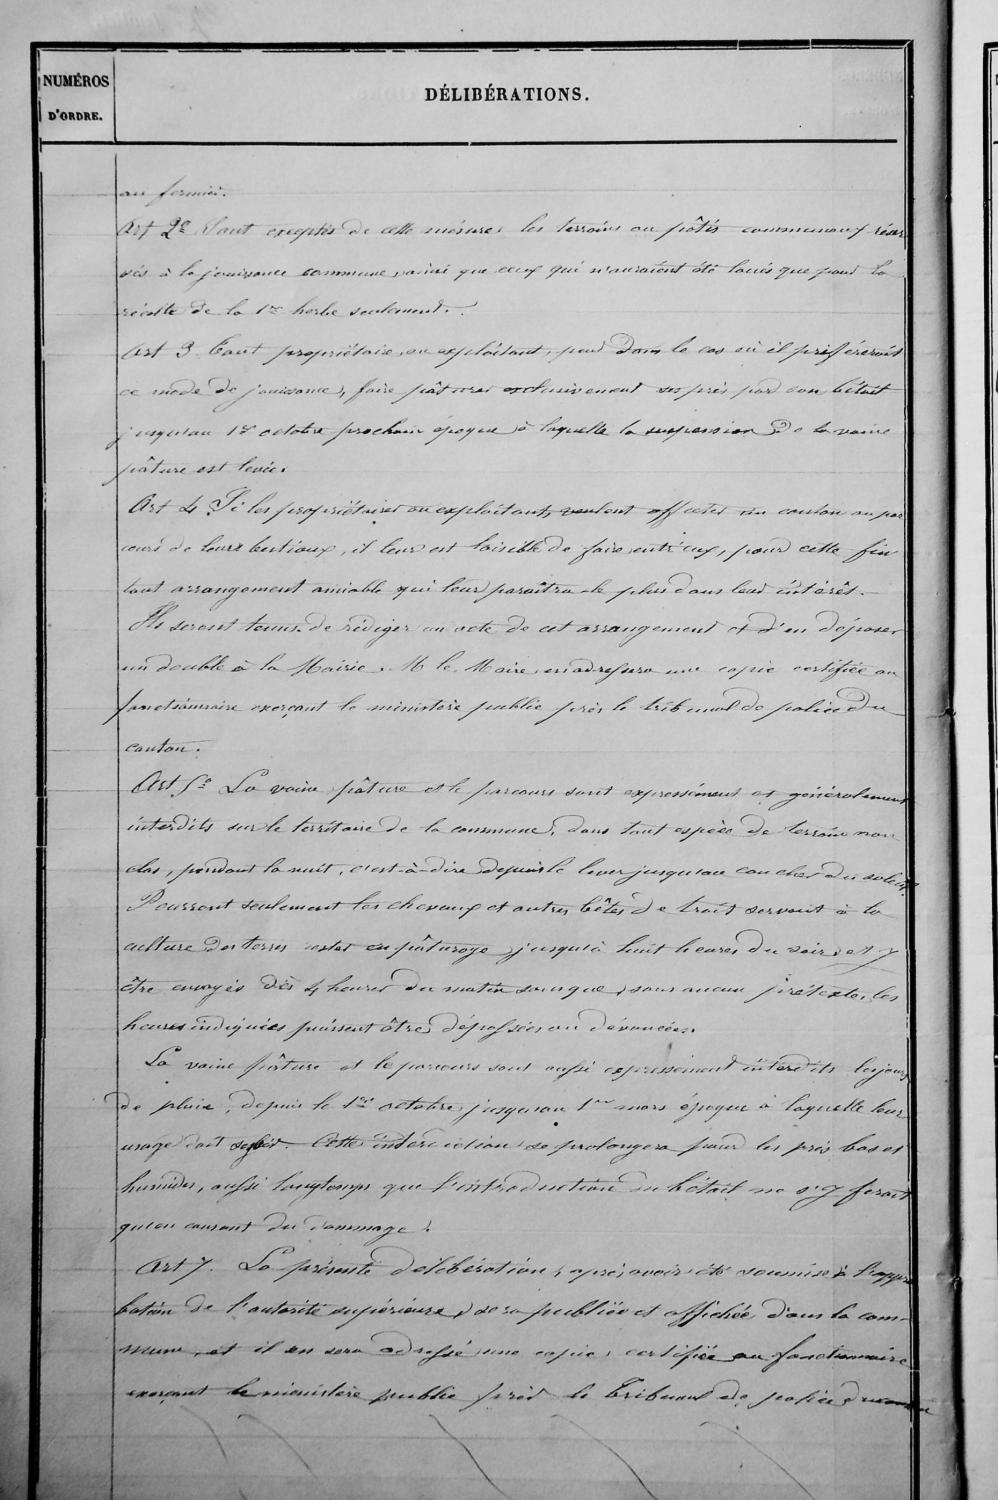 NUMÉROS
D'ORDRE.
DÉLIBÉRATIONS.
au fermier.
Art 2e Sont exceptés de cette mesure les terrains ou pâtis communaux réser
vés à la jouissance commune, ainsi que ceux qui n'auraient été loués que pour la
récolte de la 1re herbe seulement.
Art 3 Tout propriétaire ou exploitant, peut dans le cas où il préférerait
ce mode de jouissance, faire pâturer exclusivement ses prés par son bétail
jusqu'au 1er octobre prochain époque à laquelle la suspension de la vaine
pâture est levée.
Art 4. Si les propriétaires ou exploitants veulent affecter un canton au par
cours de leurs bestiaux, il leur est loisible de faire entr'eux, pour cette fin
tout arrangement amiable qui leur paraîtra le plus dans leur intérêt.
Ils seront tenus de rédiger un acte de cet arrangement et d'en déposer
un double à la Mairie. M le Maire en adressera une copie certifiée au
fonctionnaire exerçant le ministère public près le tribunal de police du
canton.
Art 5e La vaine pâture et le parcours sont expressément et généralement
interdits sur le territoire de la commune, dans tout espèce de terrain non
clos, pendant la nuit, c'est-à-dire depuis le lever jusqu'au coucher du soleil.
Pourront seulement les chevaux et autres bêtes de trait servant à la
culture des terres rester en pâturage jusqu'à huit heures du soir, et y
être envoyés dès 4 heures du matin sans que, sous aucun prétexte, les
heures indiquées puissent être dépassées ou devancées.
La vaine pâture et le parcours sont aussi expressément interdits les jours
de pluie, depuis le 1er octobre jusqu'au 1er mars époque à laquelle leur
usage doit Cette interdiction se prolongera pour les prés bas et
humides, aussi longtemps que l'introduction du bétail ne s'y ferait
qu'en causant du dommage.
Art 7. La présente délibération, après avoir été soumise à l'appro
bation de l'autorité supérieure, sera publiée et affichée dans la com-
mune, et il en sera adressé une copie certifiée au fonctionnaire
exerçant le ministère public près le Tribunal de police du canton